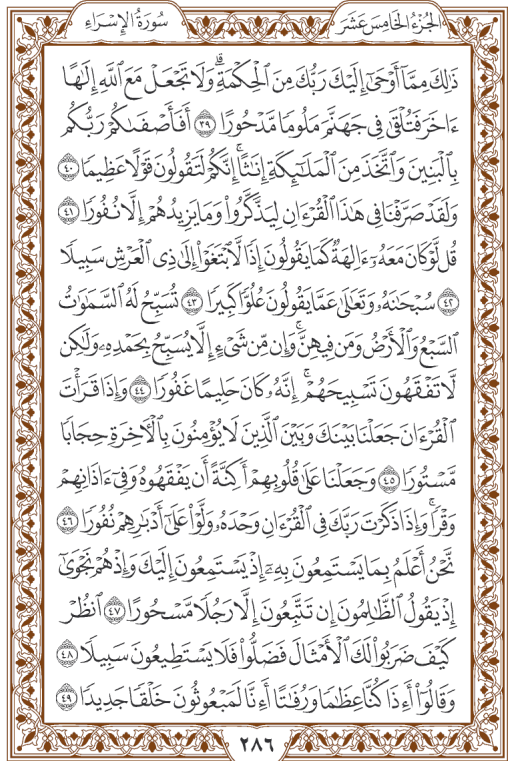 الجُزْءُ الخَامِسَ عَشَرَ
سُورَةُ الإِسْرَاءِ
ذَٰلِكَ مِمَّآ أَوْحَىٰٓ إِلَيْكَ رَبُّكَ مِنَ ٱلْحِكْمَةِۗ وَلَا تَجْعَلْ مَعَ ٱللَّهِ إِلَٰهًا
ءَاخَرَ فَتُلْقَىٰ فِى جَهَنَّمَ مَلُومًا مَّدْحُورًا ۝٣٩ أَفَأَصْفَىٰكُمْ رَبُّكُم
بِٱلْبَنِينَ وَٱتَّخَذَ مِنَ ٱلْمَلَٰٓئِكَةِ إِنَٰثًاۚ إِنَّكُمْ لَتَقُولُونَ قَوْلًا عَظِيمًا ۝٤٠
وَلَقَدْ صَرَّفْنَا فِى هَٰذَا ٱلْقُرْءَانِ لِيَذَّكَّرُوا۟ وَمَا يَزِيدُهُمْ إِلَّا نُفُورًا ۝٤١
قُل لَّوْ كَانَ مَعَهُۥٓ ءَالِهَةٌ كَمَا يَقُولُونَ إِذًا لَّٱبْتَغَوْا۟ إِلَىٰ ذِى ٱلْعَرْشِ سَبِيلًا
۝٤٢ سُبْحَٰنَهُۥ وَتَعَٰلَىٰ عَمَّا يَقُولُونَ عُلُوًّا كَبِيرًا ۝٤٣ تُسَبِّحُ لَهُ ٱلسَّمَٰوَٰتُ
ٱلسَّبْعُ وَٱلْأَرْضُ وَمَن فِيهِنَّۚ وَإِن مِّن شَىْءٍ إِلَّا يُسَبِّحُ بِحَمْدِهِۦ وَلَٰكِن
لَّا تَفْقَهُونَ تَسْبِيحَهُمْۚ إِنَّهُۥ كَانَ حَلِيمًا غَفُورًا ۝٤٤ وَإِذَا قَرَأْتَ
ٱلْقُرْءَانَ جَعَلْنَا بَيْنَكَ وَبَيْنَ ٱلَّذِينَ لَا يُؤْمِنُونَ بِٱلْءَاخِرَةِ حِجَابًا
مَّسْتُورًا ۝٤٥ وَجَعَلْنَا عَلَىٰ قُلُوبِهِمْ أَكِنَّةً أَن يَفْقَهُوهُ وَفِىٓ ءَاذَانِهِمْ
وَقْرًاۚ وَإِذَا ذَكَرْتَ رَبَّكَ فِى ٱلْقُرْءَانِ وَحْدَهُۥ وَلَّوْا۟ عَلَىٰٓ أَدْبَٰرِهِمْ نُفُورًا ۝٤٦
نَّحْنُ أَعْلَمُ بِمَا يَسْتَمِعُونَ بِهِۦٓ إِذْ يَسْتَمِعُونَ إِلَيْكَ وَإِذْ هُمْ نَجْوَىٰٓ
إِذْ يَقُولُ ٱلظَّٰلِمُونَ إِن تَتَّبِعُونَ إِلَّا رَجُلًا مَّسْحُورًا ۝٤٧ ٱنظُرْ
كَيْفَ ضَرَبُوا۟ لَكَ ٱلْأَمْثَالَ فَضَلُّوا۟ فَلَا يَسْتَطِيعُونَ سَبِيلًا ۝٤٨
وَقَالُوٓا۟ أَءِذَا كُنَّا عِظَٰمًا وَرُفَٰتًا أَءِنَّا لَمَبْعُوثُونَ خَلْقًا جَدِيدًا ۝٤٩
٢٨٦